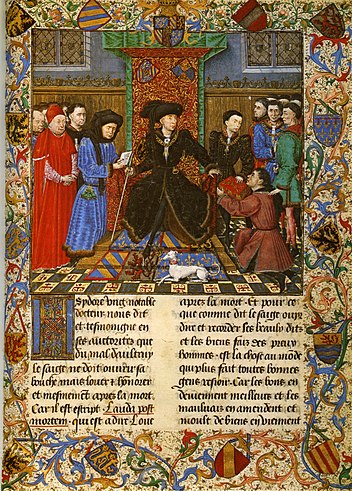 Isydore ung notable
docteur nous dit
et tesmoingne en
ses auctorites que
du mal daultruy
le saige ne doit ouurir sa
bouche mais louer et honorer
et mesmement apres la mort.
Car il est escript. Lauda post
mortem. qui est a dire Loue
apres la mort. Et pour ce
que comme dit le saige ouyr
dire et recorder les beaulx dits
et les biens fais des preu
hommes. est la chose au monde
qui plus fait toutes bonnes
gens resioir. Car les bons en
deuiennent meilleurs et les
mauluais en amendent. et
moult de biens en viennent